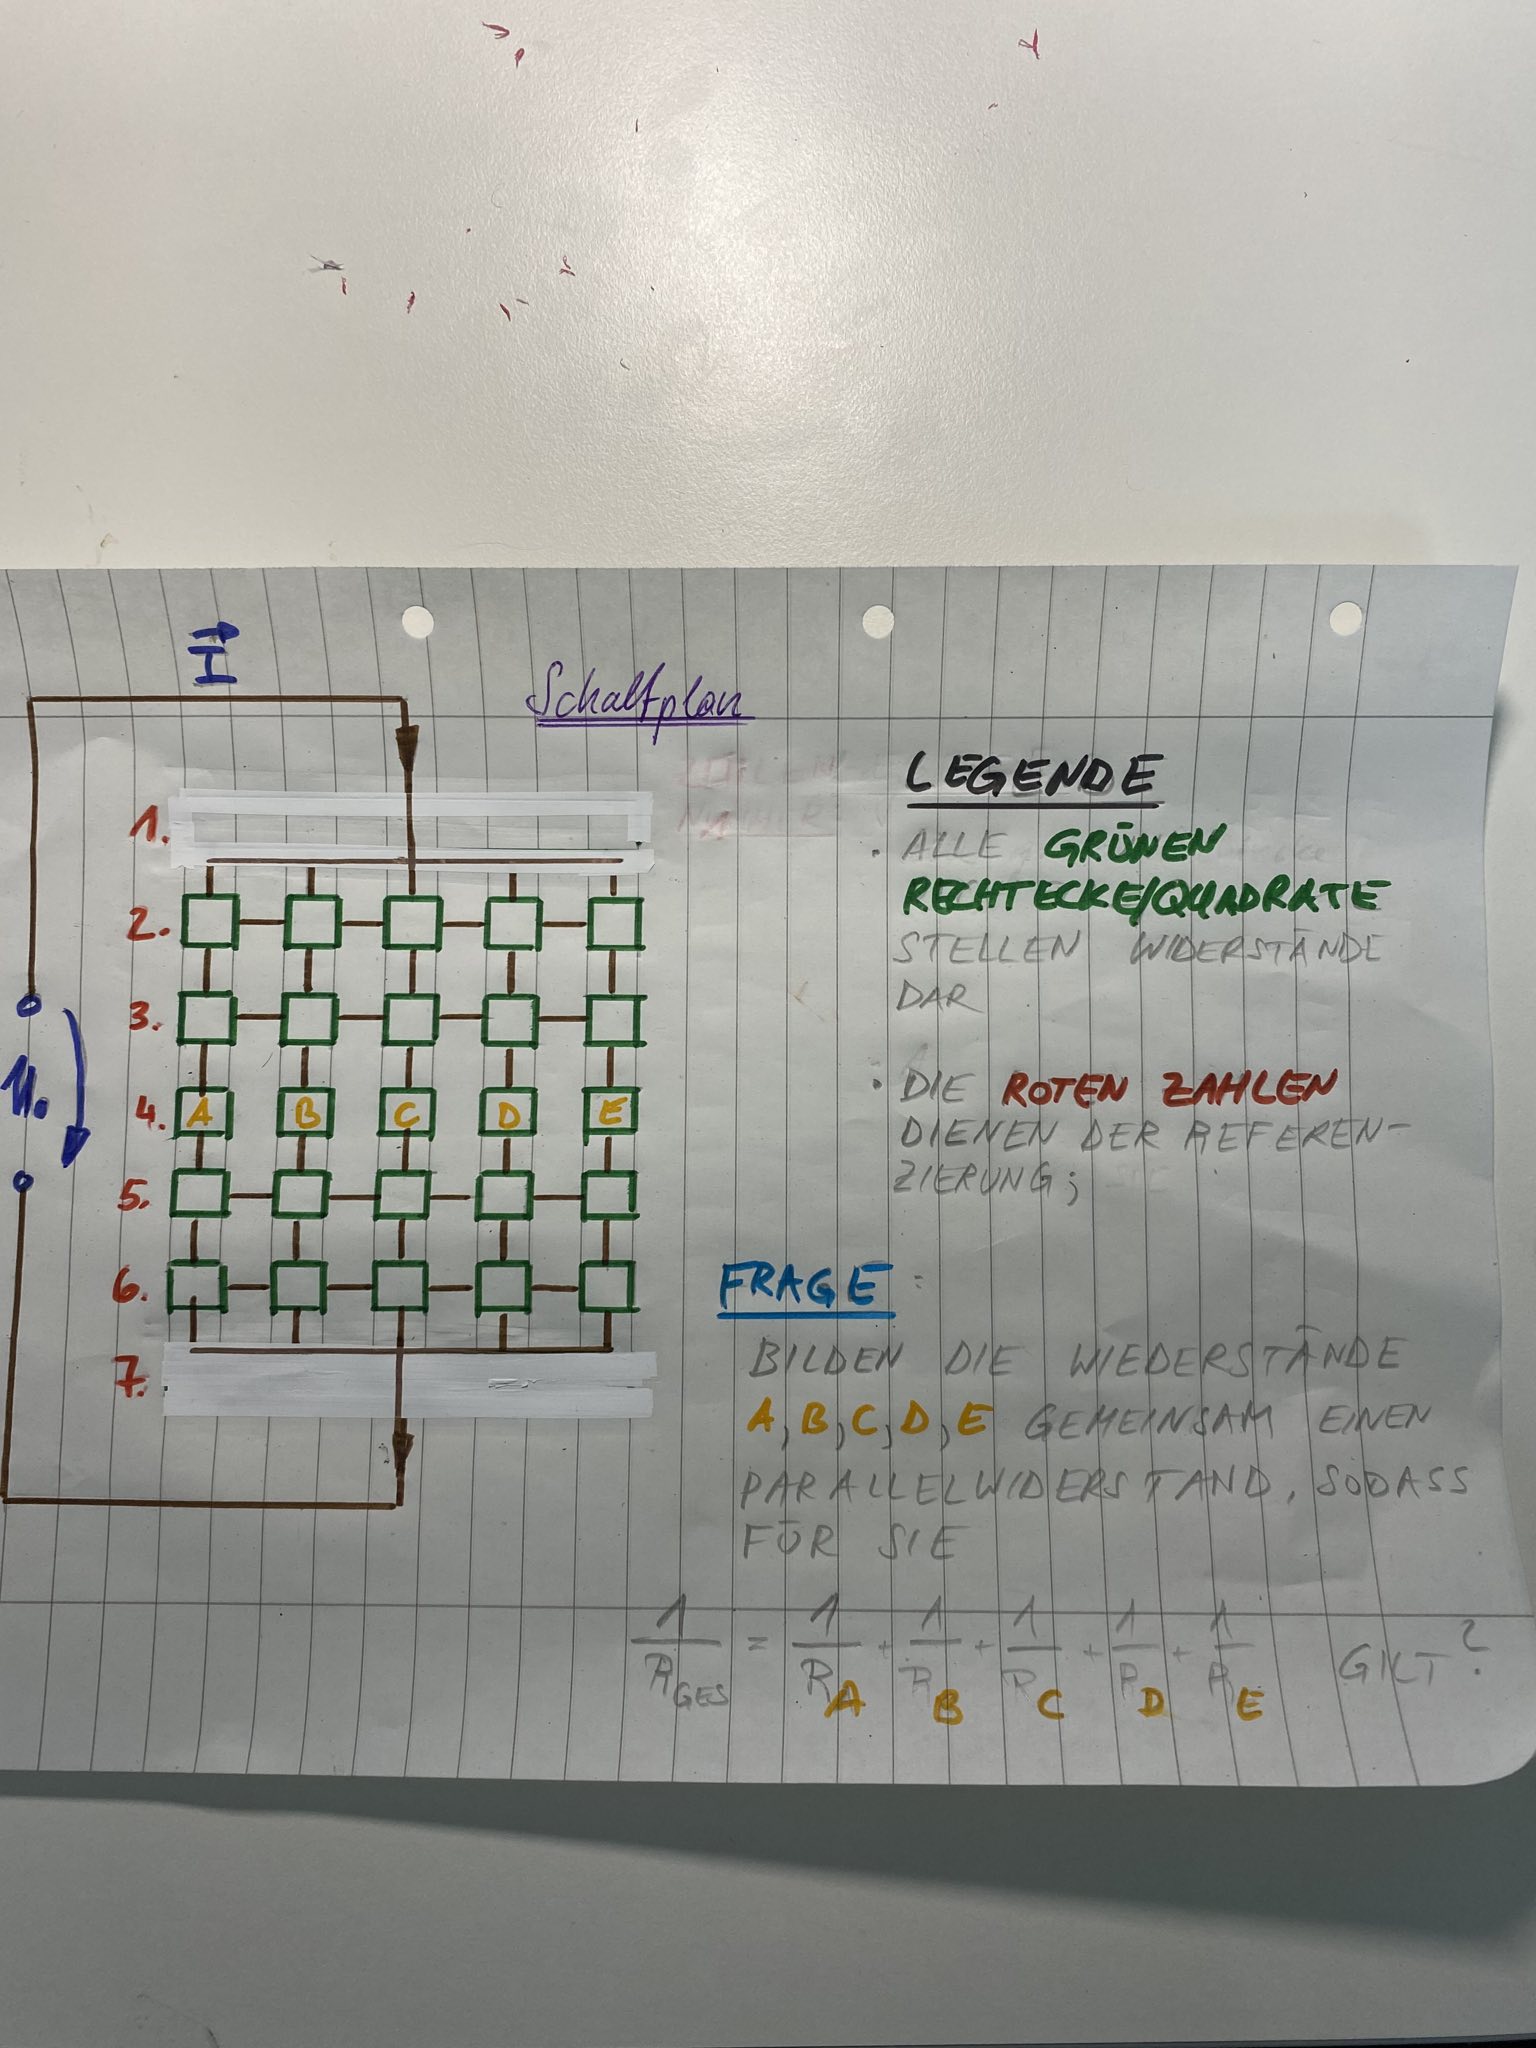 I
Schaltplan
LEGENDE
1.
• ALLE GRÜNEN
RECHTECKE/QUADRATE
STELLEN WIDERSTÄNDE
DAR
2.
3.
• DIE ROTEN ZAHLEN
DIENEN DER REFEREN-
ZIERUNG;
4. A B C D E
5.
6.
7.
FRAGE:
BILDEN DIE WIEDERSTÄNDE
A, B, C, D, E GEMEINSAM EINEN
PARALLELWIDERSTAND, SODASS
FÜR SIE
1/R_GES = 1/R_A + 1/R_B + 1/R_C + 1/R_D + 1/R_E GILT?